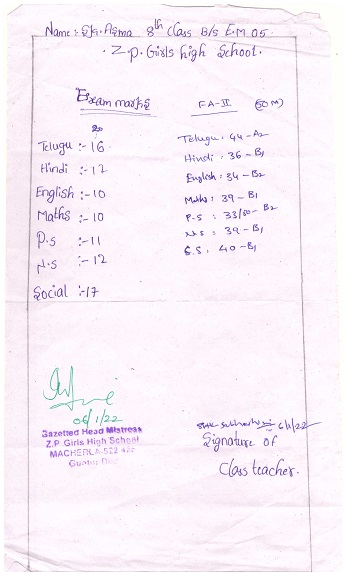 Name: Sk. Asma 8th Class B/s E.M 05.
Z.P. Girls high School.
Exam marks
20
Telugu :- 16
Hindi :- 12
English :- 10
Maths :- 10
P.S :- 11
N.S :- 12
Social :- 17
FA-II (50 M)
Telugu : 44 - A2
Hindi : 36 - B1
English : 34 - B2
Maths : 39 - B1
P.S : 33/50 - B2
N.S : 39 - B1
S.S : 40 - B1
06/1/22
Gazetted Head Mistress
Z.P Girls High School
MACHERLA-522 426
Guntur Dist
6/1/22
Signature of
Class teacher.